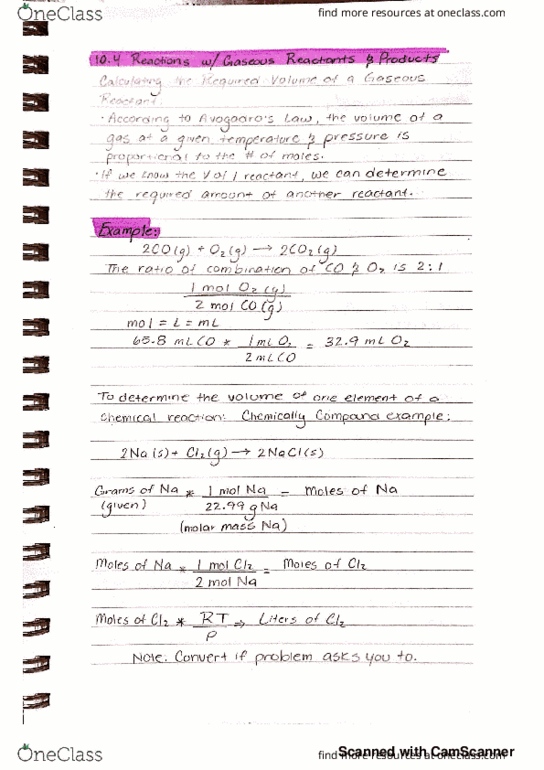 OneClass
find more resources at oneclass.com
10.4 Reactions w/ Gaseous Reactants & Products
Calculating the Required Volume of a Gaseous
Reactant.
• According to Avogadro's Law, the volume of a
gas at a given temperature & pressure is
proportional to the # of moles.
• If we know the V of 1 reactant, we can determine
the required amount of another reactant.
Example:
2CO(g) + O₂(g) → 2CO₂(g)
The ratio of combination of CO & O₂ is 2:1
1 mol O₂(g)
2 mol CO(g)
mol = L = mL
65.8 mL CO * 1 mL O₂ = 32.9 mL O₂
2 mL CO
To determine the volume of one element of a
chemical reaction: Chemically Compound example:
2Na(s) + Cl₂(g) → 2NaCl(s)
Grams of Na * 1 mol Na = Moles of Na
(given) 22.99 g Na
(molar mass Na)
Moles of Na * 1 mol Cl₂ = Moles of Cl₂
2 mol Na
Moles of Cl₂ * RT ⇒ Liters of Cl₂
P
Note: Convert if problem asks you to.
OneClass
find more resources at oneclass.com
Scanned with CamScanner